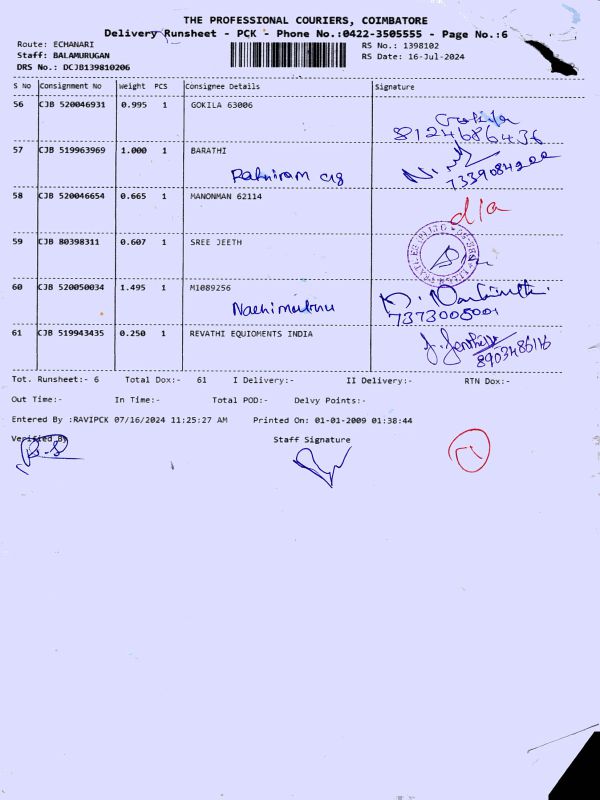 THE PROFESSIONAL COURIERS, COIMBATORE
Delivery Runsheet - PCK - Phone No.:0422-3505555 - Page No.:6
Route: ECHANARI
RS No.: 1398102
Staff: BALAMURUGAN
RS Date: 16-Jul-2024
DRS No.: DCJB139810206
S No Consignment No Weight PCS Consignee Details Signature
56 CJB 520046931 0.995 1 GOKILA 63006
Gokila
8124686436
57 CJB 519963969 1.000 1 BARATHI
58 CJB 520046654 0.665 1 MANONMAN 62114
d/a
59 CJB 80398311 0.607 1 SREE JEETH
60 CJB 520050034 1.495 1 M1089256
Nachimuthu
7373005001
61 CJB 519943435 0.250 1 REVATHI EQUIOMENTS INDIA
8903486116
Tot. Runsheet:- 6 Total Dox:- 61 I Delivery:- II Delivery:- RTN Dox:-
Out Time:- In Time:- Total POD:- Delvy Points:-
Entered By :RAVIPCK 07/16/2024 11:25:27 AM Printed On: 01-01-2009 01:38:44
Verified By Staff Signature